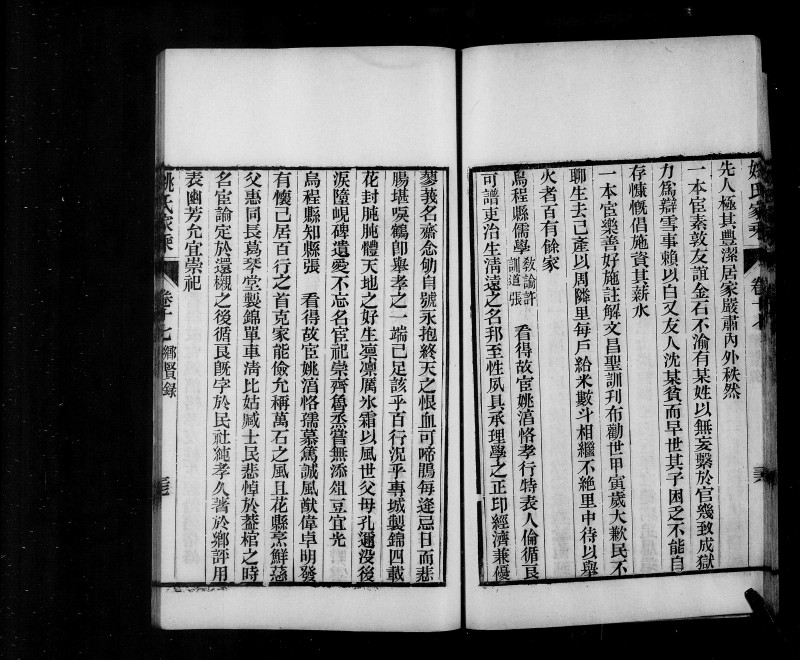 姚氏家乘 卷十七
先人極其豐潔居家嚴肅內外秩然
一本宦素敦友誼金石不渝有某姓以無妄繫於官幾致成獄
力為辯雪事賴以白又友人沈某貧而早世其子困乏不能自
存慷慨倡施資其薪水
一本宦樂善好施註解文昌聖訓刋布勸世甲寅歲大歉民不
聊生去己產以周隣里每戶給米數斗相繼不絕里中待以舉
火者百有餘家
烏程縣儒學教諭許訓導張 看得故宦姚淯恪孝行特表人倫循良
可譜吏治生淸遠之名邦至性夙具承理學之正印經濟兼優
蓼莪名齋念劬自號永抱終天之恨血可啼鵑每逢忌日而悲
腸堪唳鶴卽舉孝之一端已足該乎百行況乎專城製錦四載
花封肫肫體天地之好生凛凛厲氷霜以風世父母孔邇沒後
淚墮峴碑遺愛不忘名宦祀崇齊魯烝嘗無添俎豆宜光
烏程縣知縣張 看得故宦姚淯恪孺慕篤誠風猷偉卓明發
有懷已居百行之首克家能儉允稱萬石之風且花縣烹鮮慈
父惠同長葛琴堂製錦單車淸比姑臧士民悲悼於蓋棺之時
名宦論定於還櫬之後循良旣孚於民社純孝久著於鄉評用
表幽芳允宜崇祀
姚氏家乘 卷十七 鄉賢錄